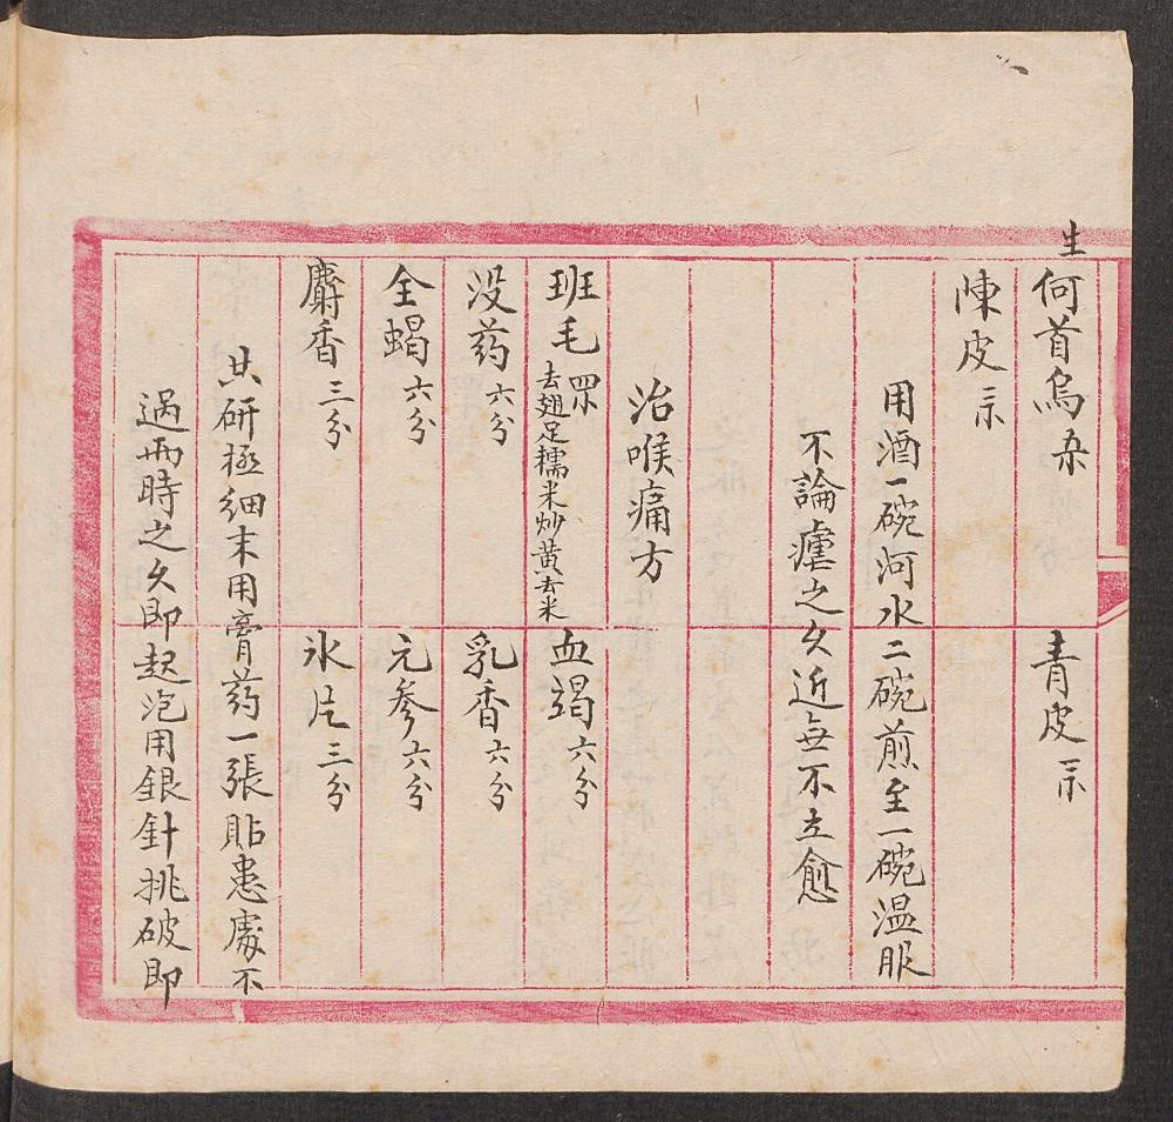 生何首烏　青皮
陳皮
用酒一碗河水二碗煎至一碗温服
不論瘧之久近無不立愈
治喉痛方
班毛　去翅足糯米炒黃去米　血竭六分
没药六分　乳香六分
全蝎六分　元參六分
麝香三分　氷片三分
共研極細末用膏药一張貼患處不
過兩時之久即起泡用銀針挑破即